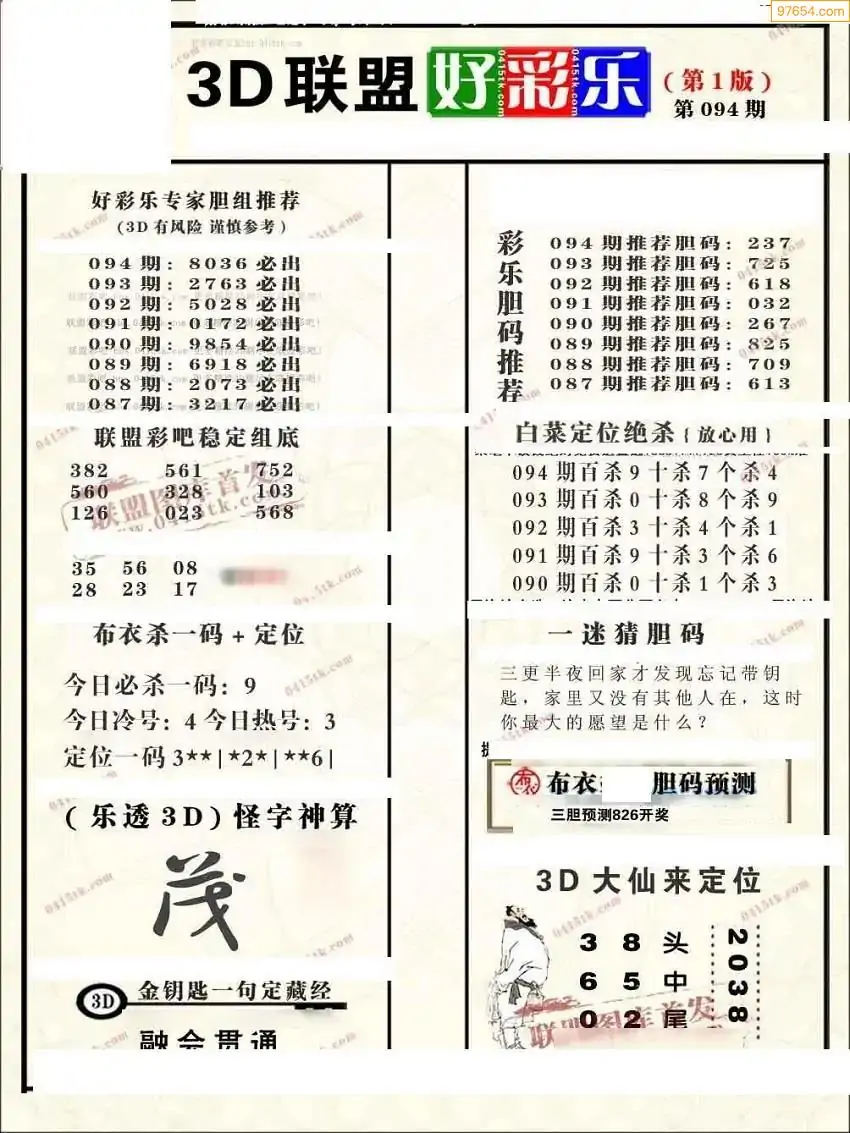 97654.com
3D联盟好彩乐
(第1版)
第094期
好彩乐专家胆组推荐
(3D有风险 谨慎参考)
094期: 8036必出
093期: 2763必出
092期: 5028必出
091期: 0172必出
090期: 9854必出
089期: 6918必出
088期: 2073必出
087期: 3217必出
联盟彩吧稳定组底
382 561 752
560 328 103
126 023 568
联盟图库首发
www.0415tk.com
35 56 08
28 23 17
布衣杀一码+定位
今日必杀一码: 9
今日冷号: 4 今日热号: 3
定位一码 3**|*2*|**6|
(乐透3D)怪字神算
茂
3D 金钥匙一句定藏经
融会贯通
彩乐胆码推荐
094期推荐胆码: 237
093期推荐胆码: 725
092期推荐胆码: 618
091期推荐胆码: 032
090期推荐胆码: 267
089期推荐胆码: 825
088期推荐胆码: 709
087期推荐胆码: 613
白菜定位绝杀{放心用}
094期百杀9十杀7个杀4
093期百杀0十杀8个杀9
092期百杀3十杀4个杀1
091期百杀9十杀3个杀6
090期百杀0十杀1个杀3
一迷猜胆码
三更半夜回家才发现忘记带钥
匙，家里又没有其他人在，这时
你最大的愿望是什么？
布衣 胆码预测
三胆预测826开奖
3D大仙来定位
3 8 头
6 5 中
0 2 尾
2038
联盟图库首发
0415tk.com